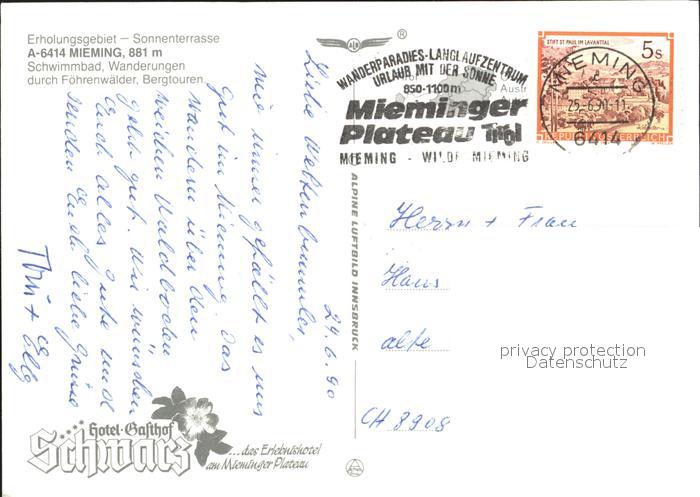 Erholungsgebiet – Sonnenterrasse
A-6414 MIEMING, 881 m
Schwimmbad, Wanderungen
durch Föhrenwälder, Bergtouren
ALR
®
WANDERPARADIES-LANGLAUFZENTRUM
URLAUB MIT DER SONNE
850-1100m
Mieminger
Plateau Tirol
MIEMING - WILDERMIEMING
Austr
STIFT ST. PAUL IM LAVANTTAL
5s
REPUBLIK ÖSTERREICH
MIEMING
25.-6.90-11
6414
24.6.90
Liebe Weltenbummler,
wie immer gefällt es uns
gut im Mieming. Das
Wandern über den
weichen Waldboden
geht gut. Wir wünschen
Euch alles Gute und
senden Euch liebe Grüsse
ALPINE LUFTBILD INNSBRUCK
Herrn + Frau
Hans
alte
CH 8908
privacy protection
Datenschutz
Hotel-Gasthof
Schwarz
...das Erlebnishotel
am Mieminger Plateau